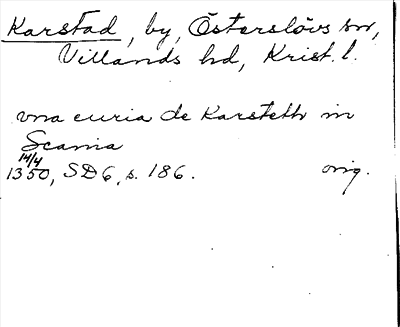 Karstad, by, Österslövs sn,
Villands hd, Krist. l.
vna curia de Karsteth in
Scania
14/4
1350, SD6, s. 186. orig.